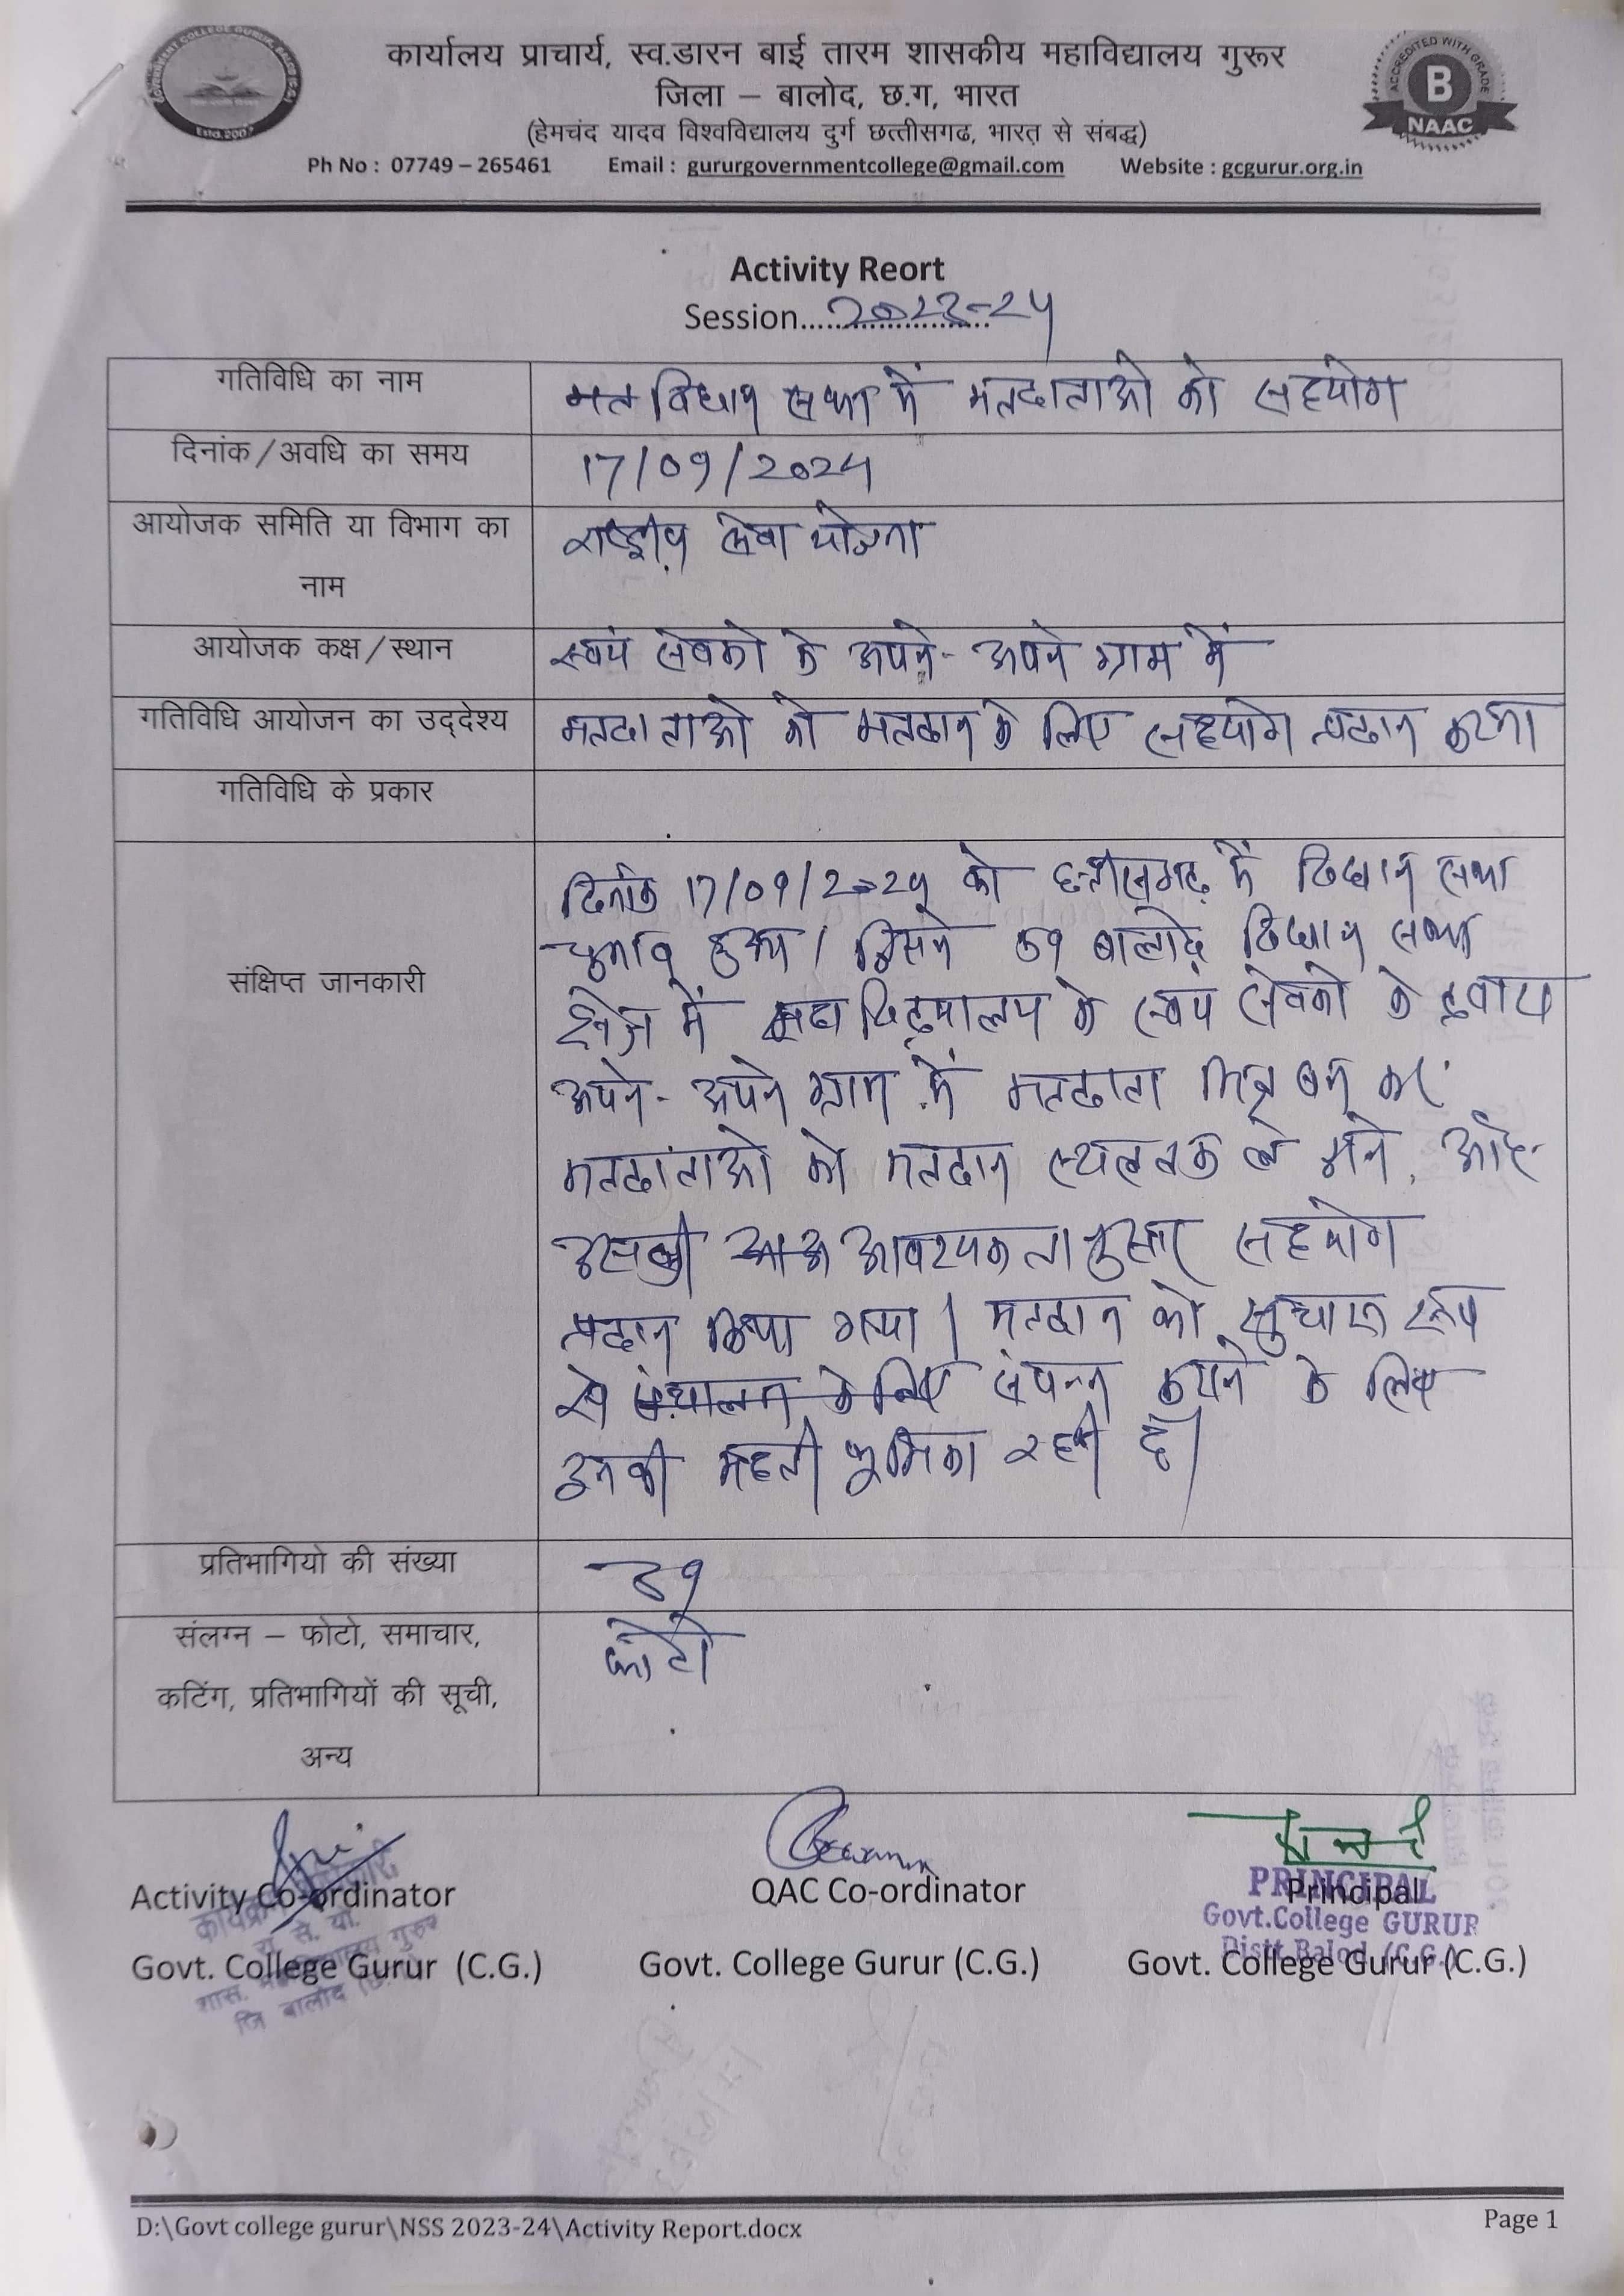 GOVERNMENT COLLEGE GURUR
Estd.2007
कार्यालय प्राचार्य, स्व.डारन बाई तारम शासकीय महाविद्यालय गुरूर
जिला – बालोद, छ.ग, भारत
(हेमचंद यादव विश्वविद्यालय दुर्ग छत्तीसगढ, भारत् से संबद्ध)
Ph No : 07749 – 265461 Email : gururgovernmentcollege@gmail.com Website : gcgurur.org.in
ACCREDITED WITH GRADE
B
NAAC
Activity Reort
Session...2023-24
गतिविधि का नाम
विधान सभा में मतदाताओ को सहयोग
दिनांक/अवधि का समय
17/09/2024
आयोजक समिति या विभाग का
नाम
राष्ट्रीय सेवा योजना
आयोजक कक्ष/स्थान
स्वयं सेवको के अपने-अपने ग्राम में
गतिविधि आयोजन का उद्देश्य
मतदाताओ को मतदान के लिए सहयोग प्रदान करना
गतिविधि के प्रकार
संक्षिप्त जानकारी
दिनांक 17/09/2024 को छत्तीसगढ़ में विधान सभा
चुनाव हुआ। जिसमे 59 बालोद विधान सभा
क्षेत्र में महाविद्यालय के स्वयं सेवको के द्वारा
अपने-अपने ग्राम में मतदाता मित्र बन कर
मतदाताओ को मतदान स्थल तक ले जाने, और
उसकी आवश्यकतानुसार सहयोग
प्रदान किया गया। मतदान को सुचारू रूप
से संचालन के लिए संपन्न कराने के लिए
इनकी महती भूमिका रही है।
प्रतिभागियो की संख्या
39
संलग्न – फोटो, समाचार,
कटिंग, प्रतिभागियों की सूची,
अन्य
फोटो
Activity Co-ordinator QAC Co-ordinator Principal
Govt. College Gurur (C.G.) Govt. College Gurur (C.G.) Govt. College Gurur (C.G.)
कार्यक्रम अधिकारी
रा. से. यो.
शास. महाविद्यालय गुरुर
जि बालोद (छ.ग.)
PRINCIPAL
Govt.College GURUR
Distt.Balod (C.G.)
D:\Govt college gurur\NSS 2023-24\Activity Report.docx Page 1